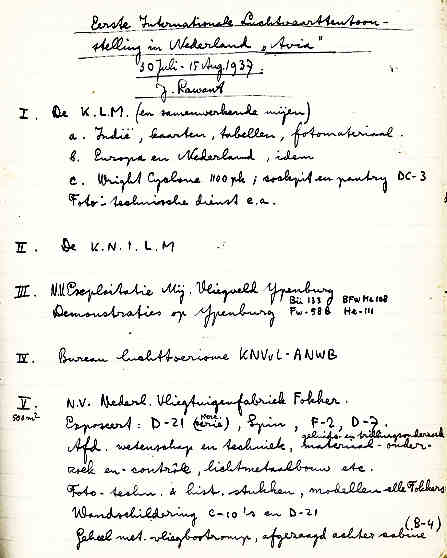 Eerste Internationale Luchtvaarttentoon-
stelling in Nederland „Avia"
30 Juli - 15 Aug. 1937.
J. Rawant
I. De K.L.M. (en samenwerkende mijen)
a. Indië, kaarten, tabellen, fotomateriaal.
b. Europa en Nederland, idem
c. Wright Cyclone 1100 pk; cockpit en pantry DC-3
Foto-technische dienst e.a.
II. De K.N.I.L.M
III. N.V. Exploitatie Mij. Vliegveld Ypenburg
Demonstraties op Ypenburg
Bü 133 BFW Me 108
Fw-58B He-111
IV. Bureau luchttoerisme KNVvL-ANWB
V. N.V. Nederl. Vliegtuigenfabriek Fokker.
500 m²
Exposeert: D-21 (serie), Spin, F-2, D-7.
geluids- en trillingsonderzoek
Afd. wetenschap en techniek, materiaal-onder-
zoek en -contrôle, lichtmetaalbouw etc.
Foto-techn. & hist. stukken, modellen alle Fokkers
Wandschildering C-10's en D-21
(B-4)
Geheel met. vliegbootromp, afgezaagd achter cabine